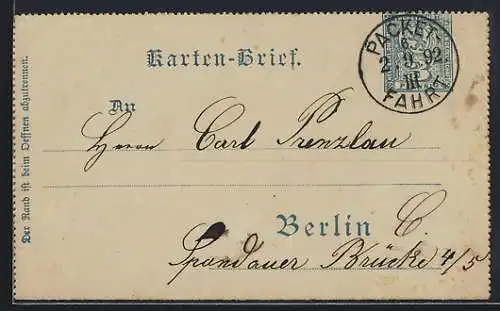 Karten-Brief.
PACKET-
6.
2.9.92
III.
FAHRT
An
Herrn Carl Prenzlau
Berlin C.
Spandauer Brücke 4/5
Der Rand ist beim Oeffnen abzutrennen.